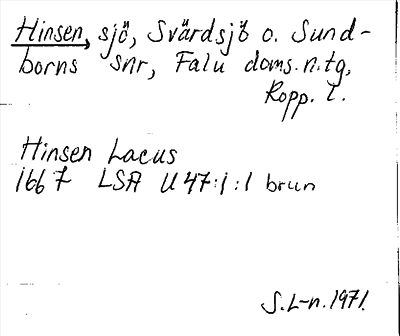 Hinsen, sjö, Svärdsjö o. Sund-
borns snr, Falu doms.n.tg,
Kopp. l.
Hinsen Lacus
1667 LSA U 47:1:1 brun
S.L-n. 1971.